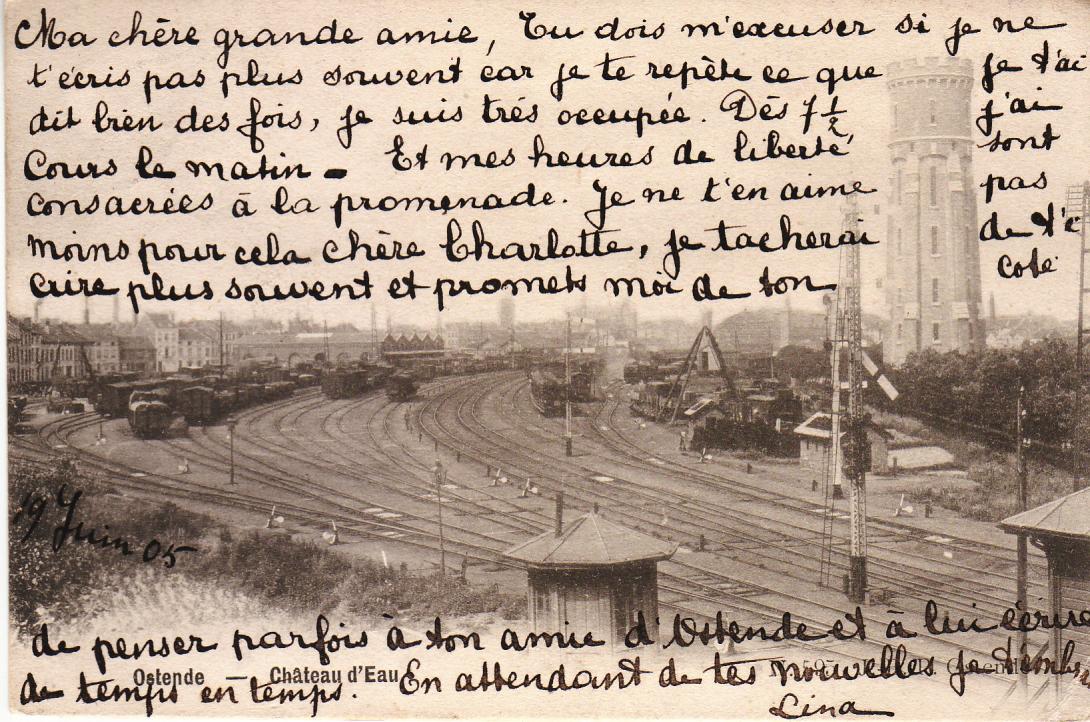 Ma chère grande amie, Tu dois m'excuser si je ne
t'écris pas plus souvent car je te repète ce que je t'ai
dit bien des fois, je suis trés occupée. Dès 7 1/2 j'ai
Cours le matin - Et mes heures de liberté sont
consacrées à la promenade. Je ne t'en aime pas
moins pour cela chère Charlotte, je tacherai de t'é
crire plus souvent et promets moi de ton coté
19 Juin 05
de penser parfois à ton amie d'Ostende et à lui écrire
de temps en temps. En attendant de tes nouvelles je t'emb
Ostende — Château d'Eau
Lina